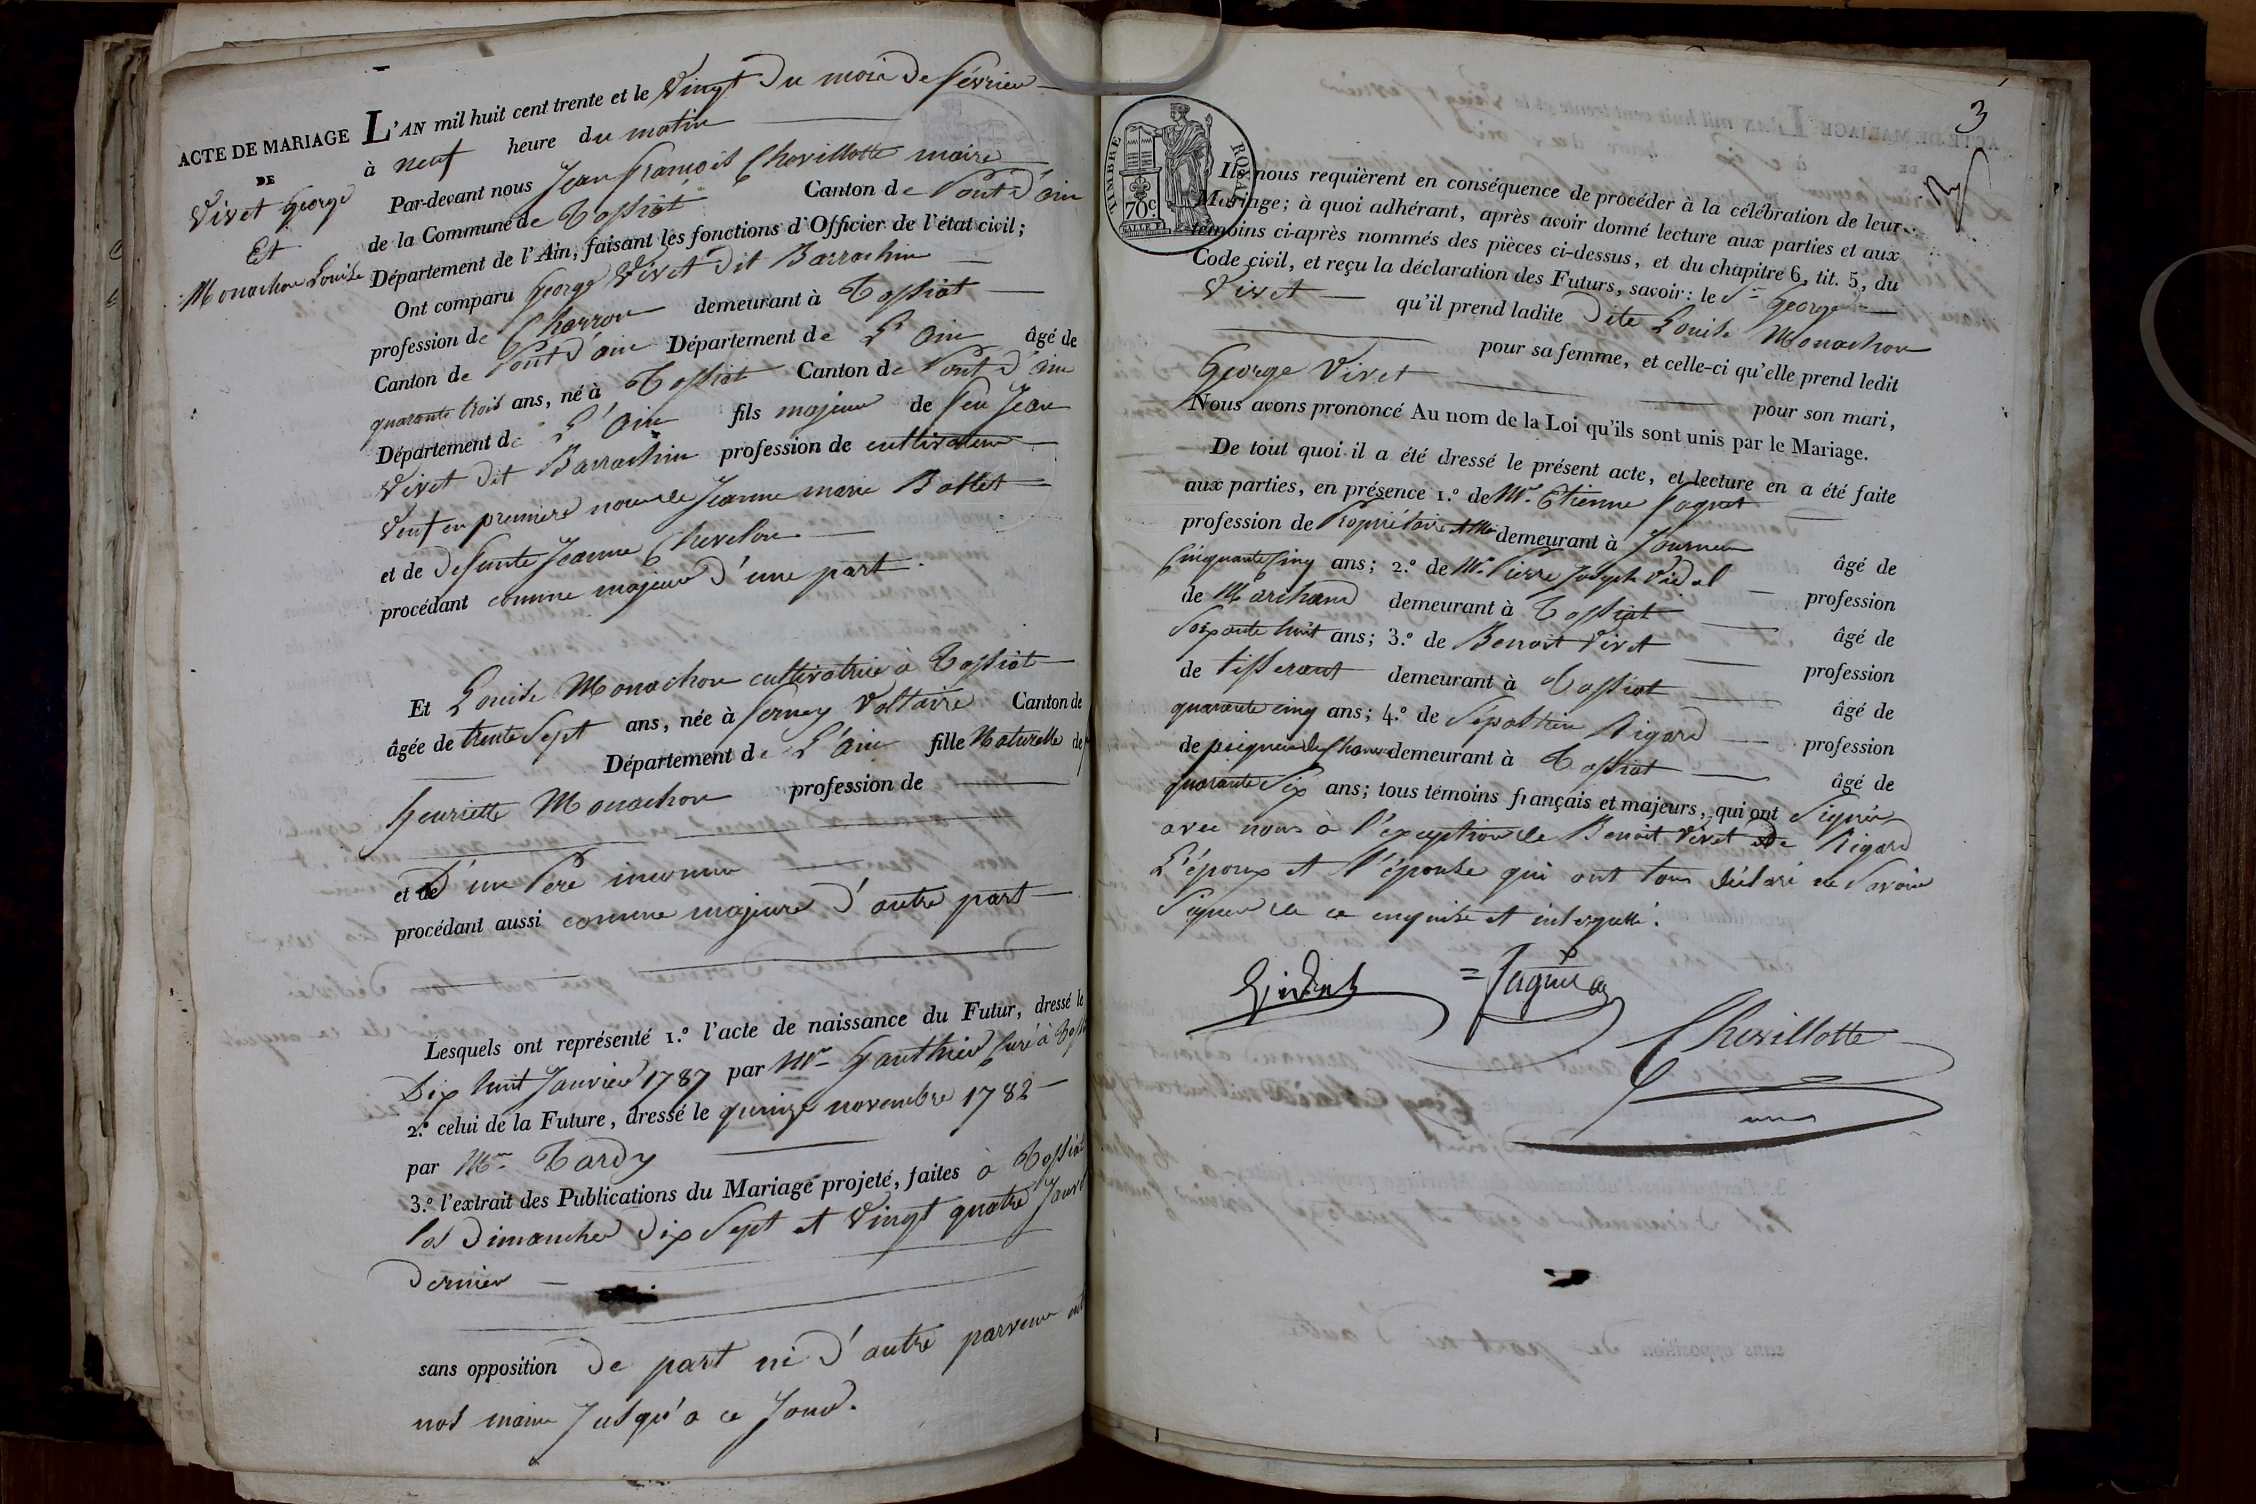 ACTE DE MARIAGE
DE
Vivet George
Et
Monachon Louise
L'AN mil huit cent trente et le Vingt Du mois De février
à neuf heure du matin
Par-devant nous Jean françois Chevillotte maire
de la Commune de Tossiat Canton de Pont d'ain
Département de l'Ain, faisant les fonctions d'Officier de l'état civil;
Ont comparu George Vivet Dit Barrachin
profession de Charron demeurant à Tossiat
Canton de Pont d'ain Département de L'Ain âgé de
quarante trois ans, né à Tossiat Canton de Pont d'ain
Département de L'Ain fils majeur de feu Jean
Vivet dit Barrachin profession de cultivateur
Veuf en premiere noce de Jeanne marie Bollet
et de Defunte Jeanne Chevelon
procédant comme majeur d'une part.
Et Louise Monachon cultivatrice à Tossiat
âgée de trente Sept ans, née à ferney Voltaire Canton de
Département de L'Ain fille Naturelle de
henriette Monachon profession de
et de D'un Pere inconnu
procédant aussi comme majeure d'autre part
Lesquels ont représenté 1.º l'acte de naissance du Futur, dressé le
Dix huit Janvier 1787 par Mr Gauthier Curé à
2.º celui de la Future, dressé le quinze novembre 1782
par Mr Tardy
3.º l'extrait des Publications du Mariage projeté, faites à Tossiat
les Dimanches Dix Sept et Vingt quatre Janv
Dernier
sans opposition De part ni D'autre parvenue
nos mains Jusqu'a ce Jour.
3
TIMBRE ROYAL
70c
Ils nous requièrent en conséquence de procéder à la célébration de leur
Mariage; à quoi adhérant, après avoir donné lecture aux parties et aux
témoins ci-après nommés des pièces ci-dessus, et du chapitre 6, tit. 5, du
Code civil, et reçu la déclaration des Futurs, savoir: le Sr George
Vivet qu'il prend ladite Dite Louise Monachon
pour sa femme, et celle-ci qu'elle prend ledit
George Vivet pour son mari,
Nous avons prononcé Au nom de la Loi qu'ils sont unis par le Mariage.
De tout quoi il a été dressé le présent acte, et lecture en a été faite
aux parties, en présence 1.º de Mr. Etienne
profession de Propriétaire demeurant à Journan âgé de
Cinquante Cinq ans; 2.º de Mr. Pierre Joseph Vidal profession
de Marchand demeurant à Tossiat âgé de
Soixante huit ans; 3.º de Benoit Vivet profession
de tisserant demeurant à Tossiat âgé de
quarante cinq ans; 4.º de Sépastien Rigard profession
de peigneur de Chanvre demeurant à Tossiat âgé de
quarante Six ans; tous témoins français et majeurs, qui ont Signés
avec nous à l'exception de Benoit Vivet et De Rigard
L'époux et l'épouse qui ont tous Déclaré ne Savoir
Signer de ce enquise et interpellé.
Vidal
Chevillotte